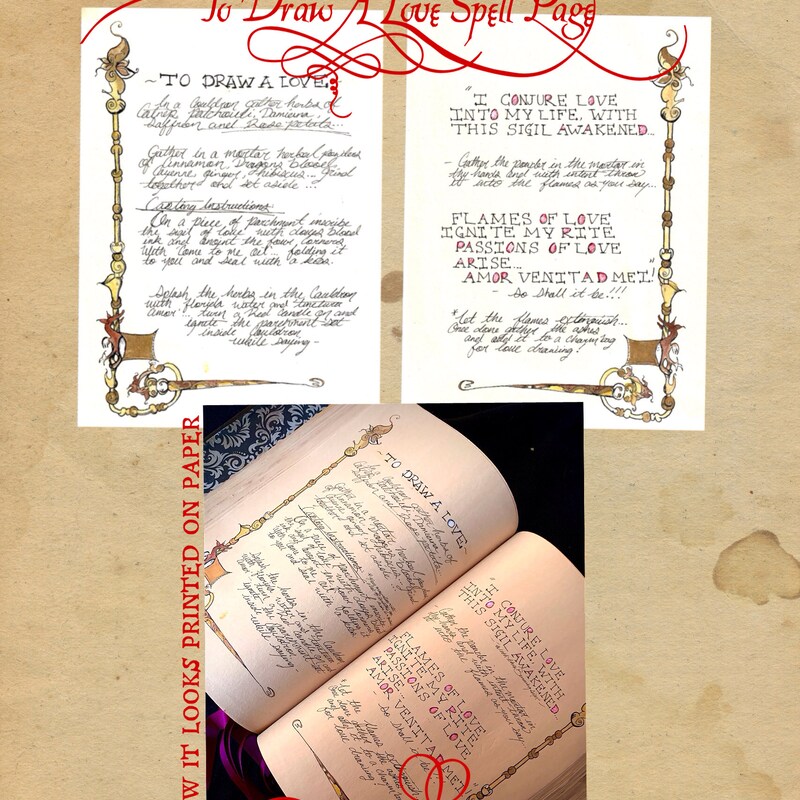 To Draw A Love Spell Page
~TO DRAW A LOVE~
In a Cauldron gather herbs of
Catnip, Patchouili, Damiana,
Saffron and Rose Petals...
Gather in a mortar herbal powders
of Cinnamon, Dragons blood,
Cayenne ginger, hibiscus... Grind
together and set aside...
Casting Instructions:
On a piece of parchment inscribe
the sigil of love with doves blood
ink and anoint the four corners
with come to me oil... folding it
to you and seal with a kiss.
Splash the herbs in the Cauldron
with florida water and tincture
amor... turn a Red candle on and
ignite the parchment set
inside Cauldron
while saying~
"I CONJURE LOVE
INTO MY LIFE, WITH
THIS SIGIL AWAKENED...
- Gather the powder in the mortar in
thy hands and with intent throw
it into the flames as you say...
FLAMES OF LOVE
IGNITE MY RITE
PASSIONS OF LOVE
ARISE...
AMOR VENITAD MEI!"
- So Shall it be!!!
*let the flames extinguish...
Once done gather the ashes
and add it to a charm bag
for love drawing!
W IT LOOKS PRINTED ON PAPER
~TO DRAW A LOVE~
Casting Instructions:
"I CONJURE LOVE
INTO MY LIFE, WITH
THIS SIGIL AWAKENED...
FLAMES OF LOVE
IGNITE MY RITE
PASSIONS OF LOVE
ARISE...
AMOR VENITAD MEI!"